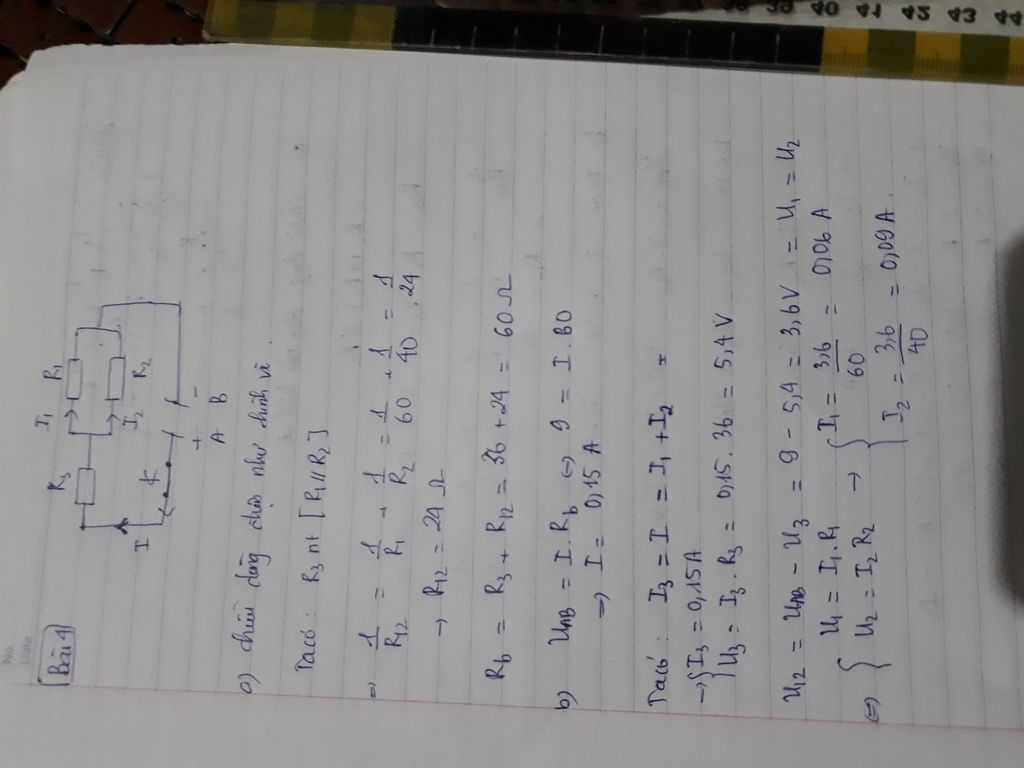 No
Date
Bài 4
I₁ R₁
R₃
I₂ R₂
I K
+ -
A B
a) chiều dòng điện như hình vẽ
Ta có: R₃ nt [R₁ // R₂]
=> 1/R₁₂ = 1/R₁ + 1/R₂ = 1/60 + 1/40 = 1/24
→ R₁₂ = 24 Ω
R_b = R₃ + R₁₂ = 36 + 24 = 60 Ω
b) U_AB = I . R_b <=> 9 = I . 60
=> I = 0,15 A
Ta có: I₃ = I = I₁ + I₂ =
→ { I₃ = 0,15A
U₃ = I₃ . R₃ = 0,15 . 36 = 5,4 V
U₁₂ = U_AB - U₃ = 9 - 5,4 = 3,6 V = U₁ = U₂
<=> { U₁ = I₁ . R₁ → { I₁ = 3,6/60 = 0,06 A
U₂ = I₂ R₂ I₂ = 3,6/40 = 0,09 A
40 41 43 44